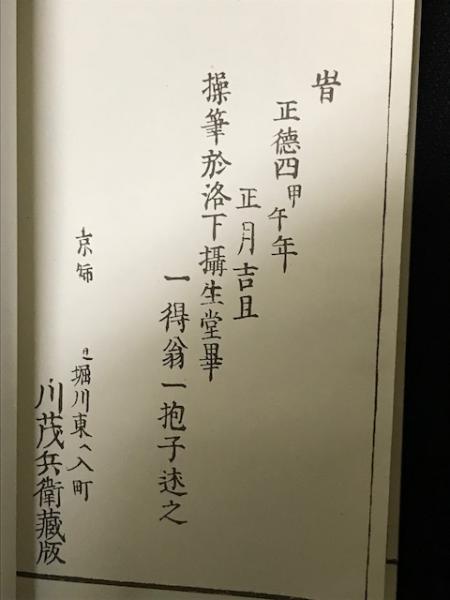 旹
正德四甲午年
正月吉旦
操筆於洛下攝生堂畢
一得翁一抱子述之
京師
堀川東ヘ入町
川茂兵衛藏版